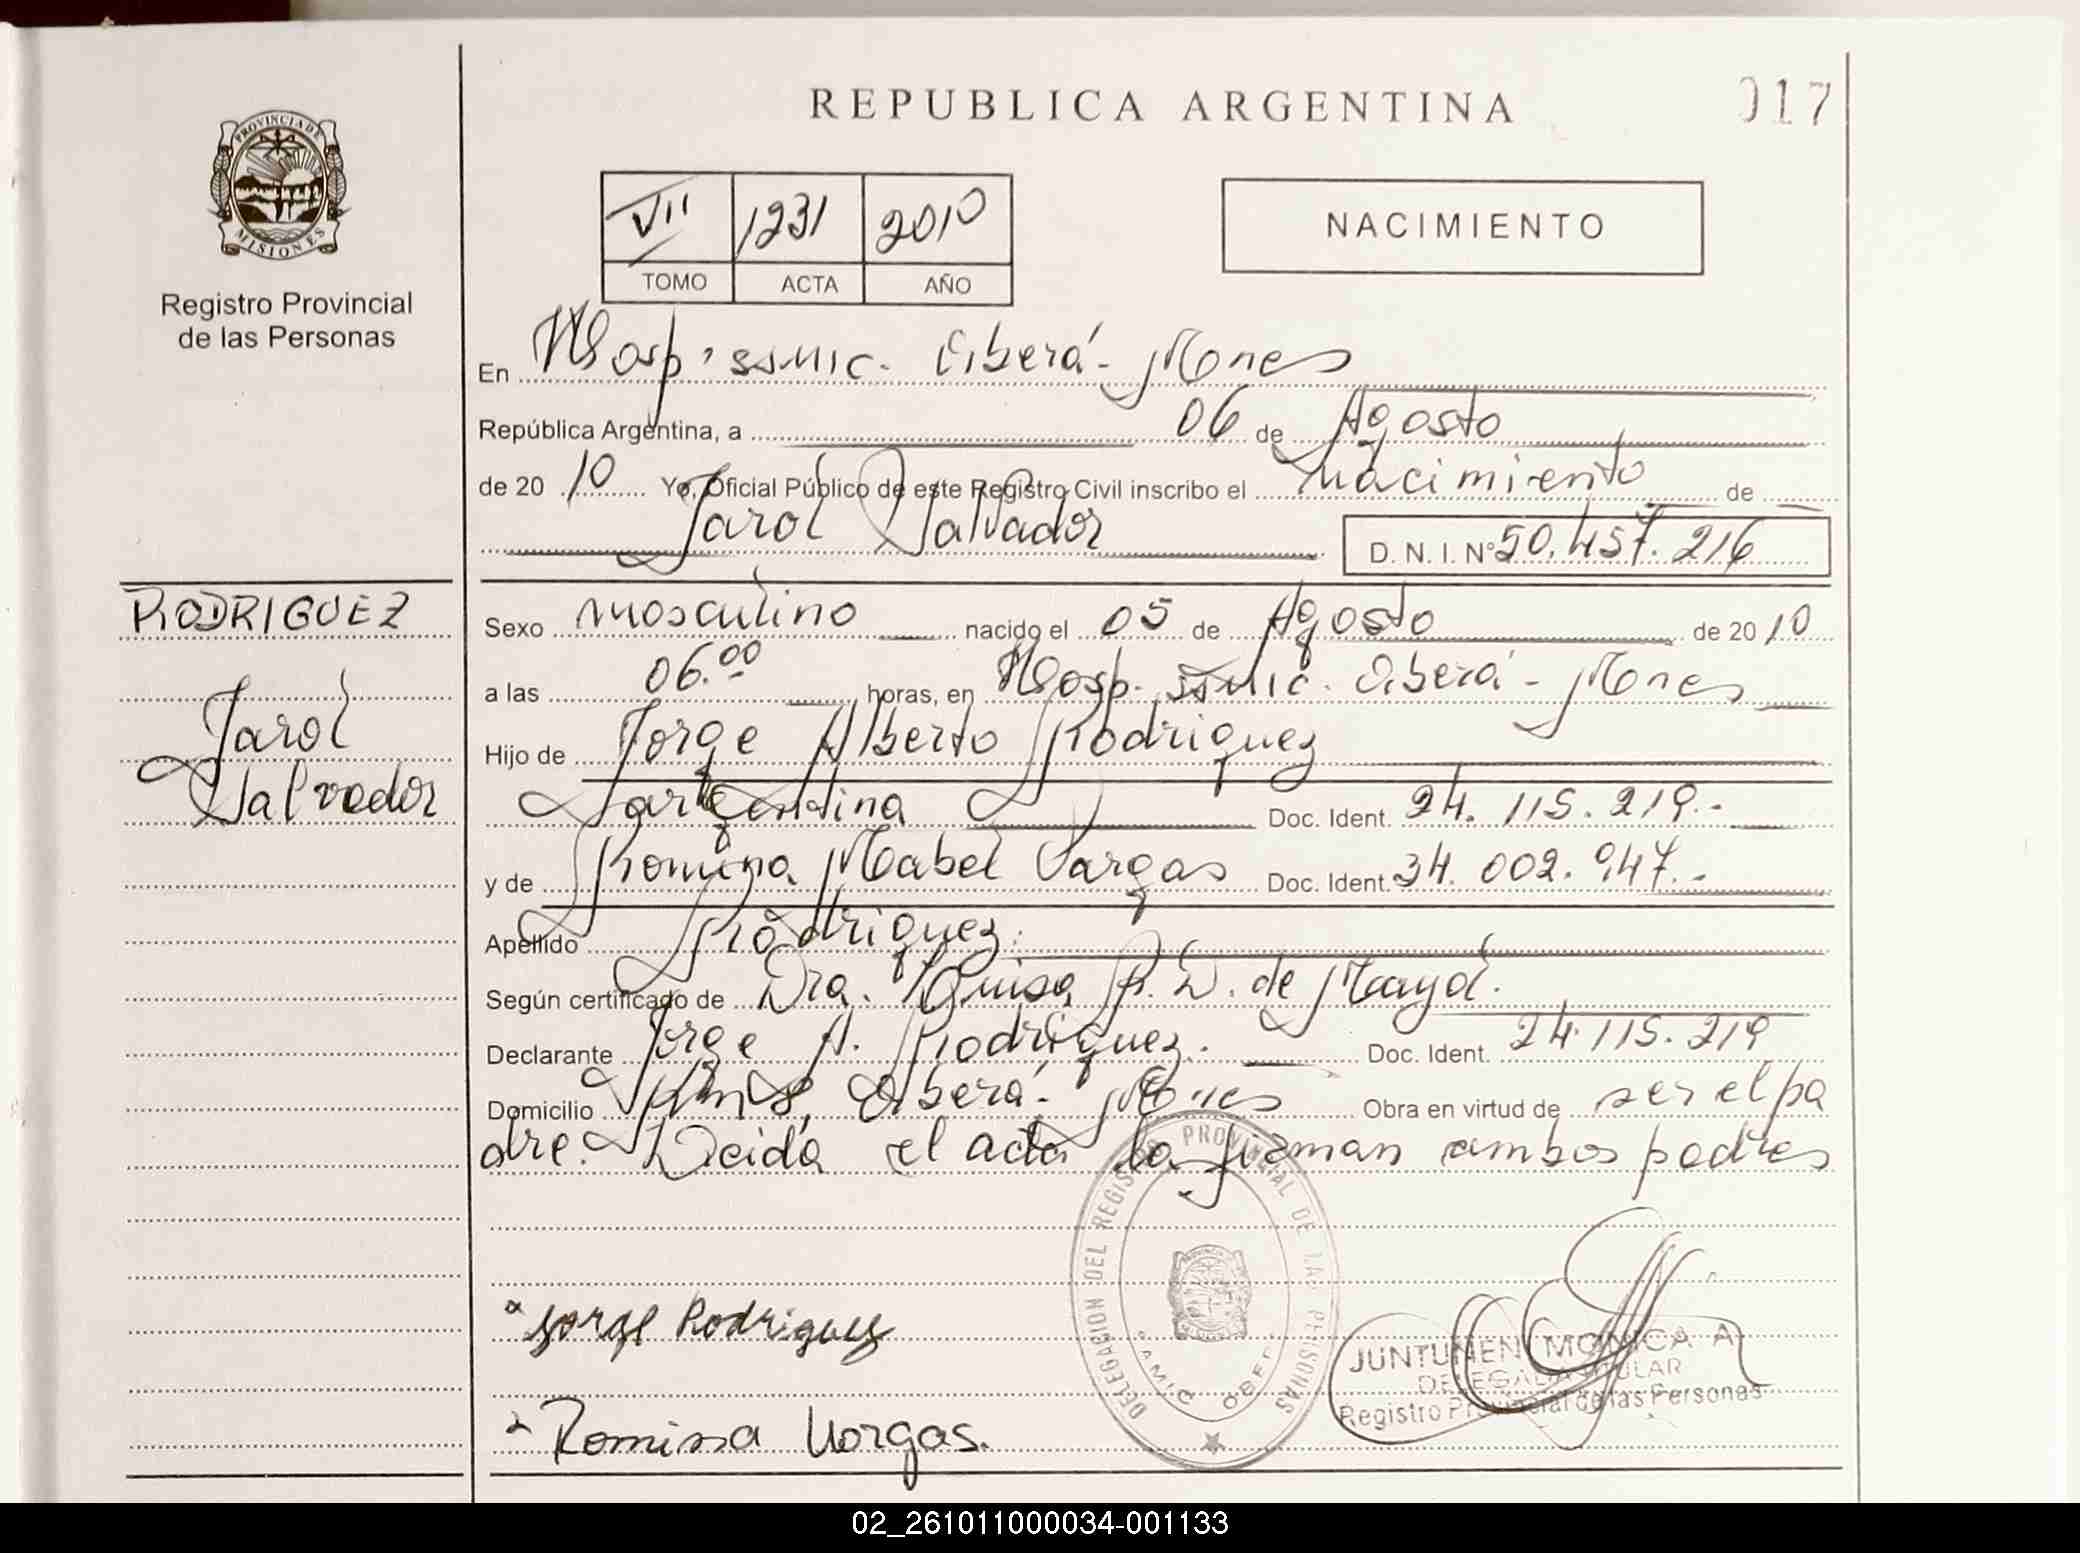 REPUBLICA ARGENTINA
017
PROVINCIA DE MISIONES
Registro Provincial
de las Personas
VII 1231 2010
TOMO ACTA AÑO
NACIMIENTO
En Hosp. SSMIC. Oberá - Mnes
República Argentina, a 06 de Agosto
de 20 10 Yo, Oficial Público de este Registro Civil inscribo el Nacimiento de
Jarol Salvador
D. N. I. Nº 50.457.216
RODRIGUEZ
Jarol
Salvador
Sexo Masculino nacido el 05 de Agosto de 20 10
a las 06.00 horas, en Hosp. SSMIC. Oberá - Mnes
Hijo de Jorge Alberto Rodriguez
Argentina Doc. Ident. 24.115.219.-
y de Romina Mabel Vargas Doc. Ident. 34.002.947.-
Apellido Rodriguez.
Según certificado de Dra. Luisa R. D. de Mayol.
Declarante Jorge A. Rodriguez. Doc. Ident. 24.115.219
Domicilio Oberá - Mnes Obra en virtud de ser el pa
dre. Leida el acta la firman ambos padres
Jorge Rodriguez
Romina Vargas.
DELEGACION DEL REGISTRO PROVINCIAL DE LAS PERSONAS
SAMIC OBERA
JUNTUNEN MONICA A
DELEGADA TITULAR
Registro Provincial de las Personas
02_261011000034-001133